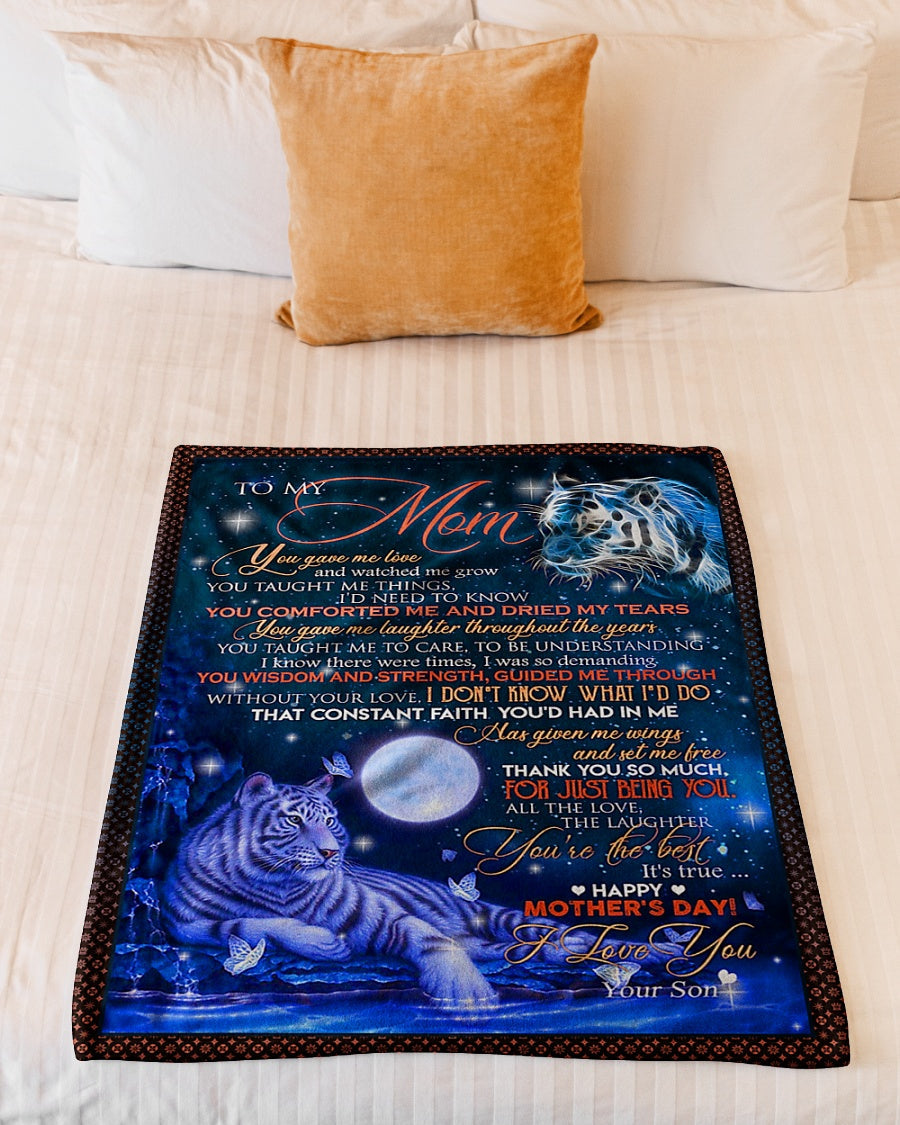 TO MY Mom
You gave me love
and watched me grow
YOU TAUGHT ME THINGS,
I'D NEED TO KNOW
YOU COMFORTED ME AND DRIED MY TEARS
You gave me laughter throughout the years
YOU TAUGHT ME TO CARE, TO BE UNDERSTANDING
I know there were times, I was so demanding.
YOU WISDOM AND STRENGTH, GUIDED ME THROUGH
WITHOUT YOUR LOVE, I DON'T KNOW WHAT I'D DO
THAT CONSTANT FAITH YOU'D HAD IN ME
Has given me wings
and set me free
THANK YOU SO MUCH,
FOR JUST BEING YOU.
ALL THE LOVE,
THE LAUGHTER
You're the best
It's true ...
HAPPY
MOTHER'S DAY!
I Love You
Your Son